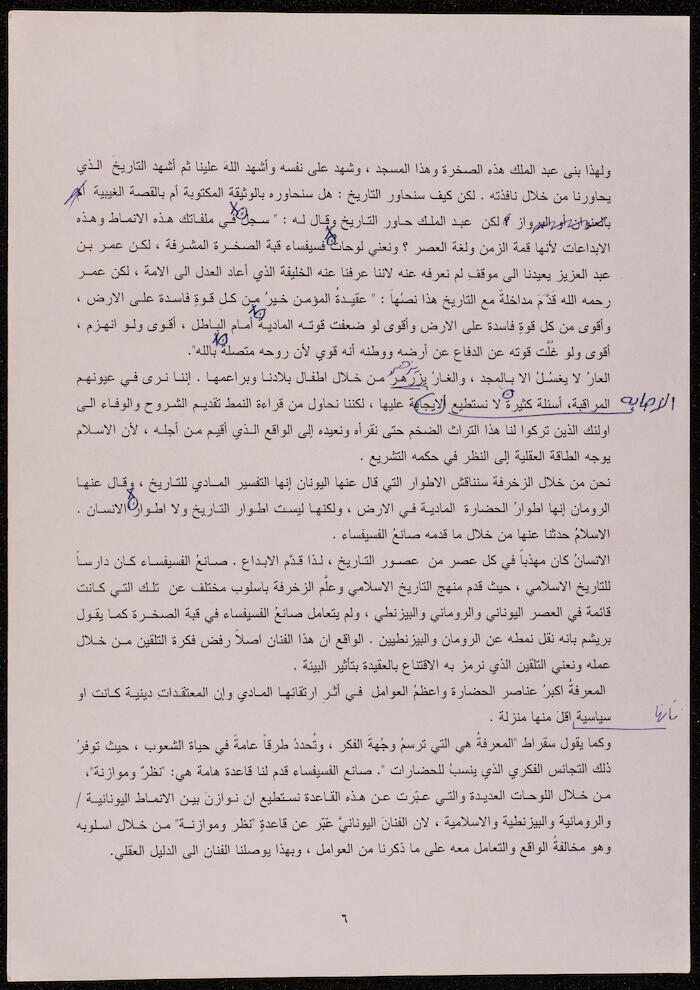 ولهذا بنى عبد الملك هذه الصخرة وهذا المسجد ، وشهد على نفسه وأشهد الله علينا ثم أشهد التاريخ الذي
يحاورنا من خلال نافذته . لكن كيف سنحاور التاريخ : هل سنحاوره بالوثيقة المكتوبة أم بالقصة الغيبية أم
بالعنوان أو البرواز ؟ لكن عبد الملك حاور التاريخ وقال له : " سجل في ملفاتك هذه الانماط وهذه
الابداعات لأنها قمة الزمن ولغة العصر ؟ ونعني لوحات فسيفساء قبة الصخرة المشرفة ، لكن عمر بن
عبد العزيز يعيدنا الى موقفٍ لم نعرفه عنه لاننا عرفنا عنه الخليفة الذي أعاد العدل الى الامة ، لكن عمر
رحمه الله قدَّمَ مداخلةً مع التاريخ هذا نصُها : " عقيدةُ المؤمن خيرٌ من كل قوةٍ فاسدة على الارض ،
وأقوى من كل قوةٍ فاسدة على الارض وأقوى لو ضعفت قوته المادية أمام الباطل ، أقوى ولو انهزم ،
أقوى ولو غُلَّت قوته عن الدفاع عن أرضه ووطنه أنه قوي لأن روحه متصلةٌ بالله".
العارُ لا يغسلُ الا بالمجد ، والغارُ يزرهر من خلال اطفال بلادنا وبراعمها . إننا نرى في عيونهم
المراقبة، أسئلة كثيرة لا نستطيع الايجابة عليها ، لكننا نحاول من قراءة النمط تقديم الشروح والوفاء الى الاجابه
اولئك الذين تركوا لنا هذا التراث الضخم حتى نقرأه ونعيده إلى الواقع الذي أقيم من أجله ، لأن الاسلام
يوجه الطاقة العقلية إلى النظر في حكمه التشريع .
نحن من خلال الزخرفة سنناقش الاطوار التي قال عنها اليونان إنها التفسير المادي للتاريخ ، وقال عنها
الرومان إنها اطوارُ الحضارة المادية في الارض ، ولكنها ليست اطوار التاريخ ولا اطوار الانسان .
الاسلامُ حدثنا عنها من خلال ما قدمه صانعُ الفسيفساء .
الانسانُ كان مهذباً في كل عصر من عصور التاريخ ، لذا قدَّم الابداع . صانعُ الفسيفساء كان دارساً
للتاريخ الاسلامي ، حيث قدم منهج التاريخ الاسلامي وعلَّم الزخرفة باسلوب مختلف عن تلك التي كانت
قائمة في العصر اليوناني والروماني والبيزنطي ، ولم يتعامل صانعُ الفسيفساء في قبة الصخرة كما يقول
بريشم بانه نقل نمطه عن الرومان والبيزنطيين . الواقع ان هذا الفنان اصلاً رفض فكرة التلقين من خلال
عمله ونعني التلقين الذي نرمز به الاقتناع بالعقيدة بتأثير البيئة .
المعرفةُ اكبرُ عناصر الحضارة واعظمُ العوامل في أثرِ ارتقائها المادي وإن المعتقداتِ دينية كانت او
سياسية اقلَ منها منزلة .
وكما يقول سقراط "المعرفةُ هي التي ترسمُ وجُهةَ الفكر ، وتُحددُ طرقاً عامةً في حياة الشعوب ، حيث توفرُ
ذلك التجانس الفكري الذي ينسبُ للحضارات ". صانع الفسيفساء قدم لنا قاعدة هامة هي: "نظرٌ وموازنة"،
من خلال اللوحات العديدة والتي عبّرت عن هذه القاعدة نستطيع ان نوازنَ بين الانماط اليونانية /
والرومانية والبيزنطية والاسلامية ، لان الفنانَ اليونانيَّ عَبّر عن قاعدةِ "نظر وموازنة" من خلال اسلوبه
وهو مخالفةُ الواقع والتعامل معه على ما ذكرنا من العوامل ، وبهذا يوصلنا الفنان الى الدليل العقلي.
٦